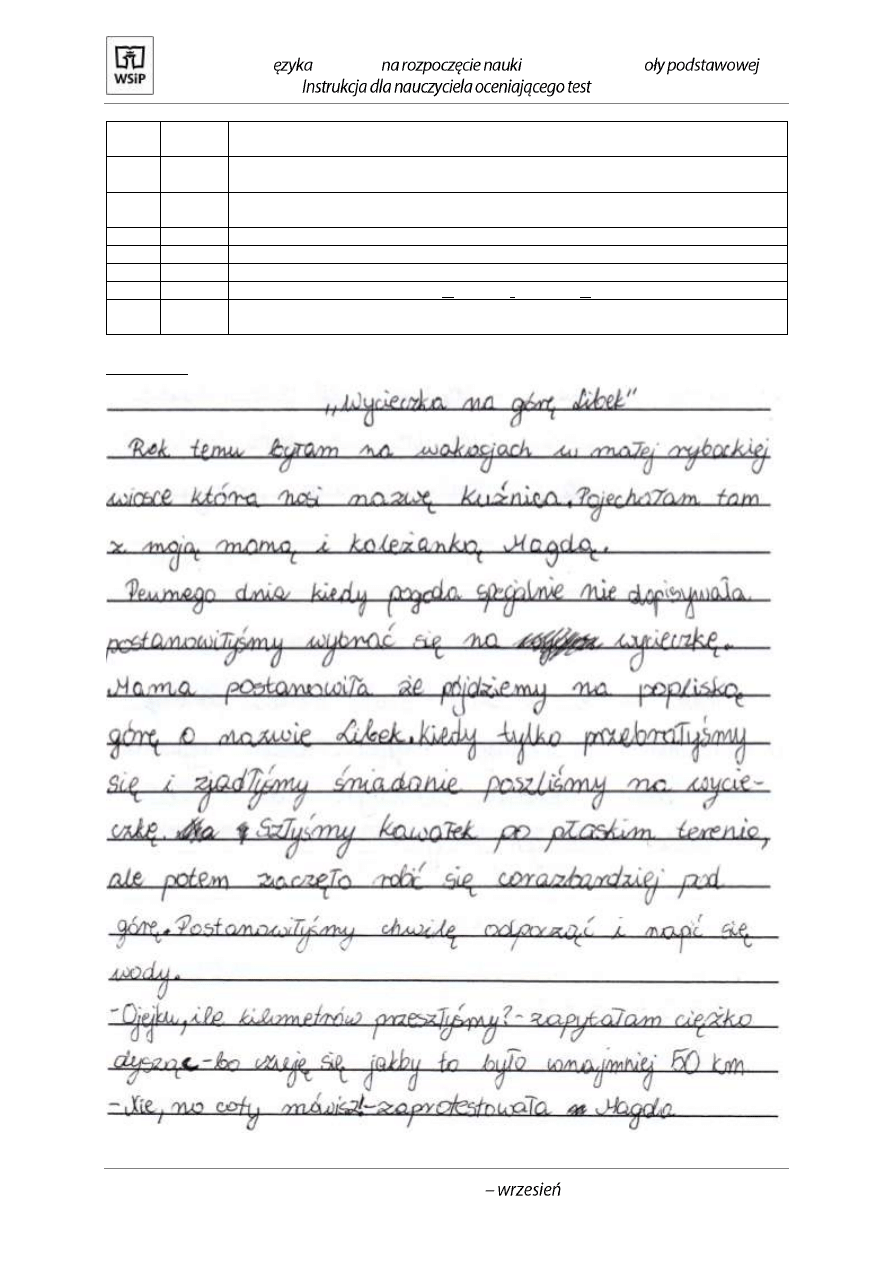 WSiP
ęzyka na rozpoczęcie nauki oły podstawowej
Instrukcja dla nauczyciela oceniającego test
„Wycieczka na górę Libek"
Rok temu byłam na wakacjach w małej rybackiej
wiosce która nosi nazwę Kuźnica. Pojechałam tam
z moją mamą i koleżanką Magdą.
Pewnego dnia kiedy pogoda specjalnie nie dopisywała
postanowiłyśmy wybrać się na wycieczkę.
Mama postanowiła że pójdziemy na popliską
górę o nazwie Libek. Kiedy tylko przebrałyśmy
się i zjadłyśmy śniadanie poszliśmy na wycie-
czkę. Szłyśmy kawałek po płaskim terenie,
ale potem zaczęło robić się corazbardziej pod
górę. Postanowiłyśmy chwilę odporząć i napić się
wody.
-Ojejku, ile kilometrów przeszłyśmy?- zapytałam ciężko
dysząc -bo czuję się jakby to było conajmniej 50 km
-Nie, no coty mówisz!-zaprotestowała Magda
– wrzesień